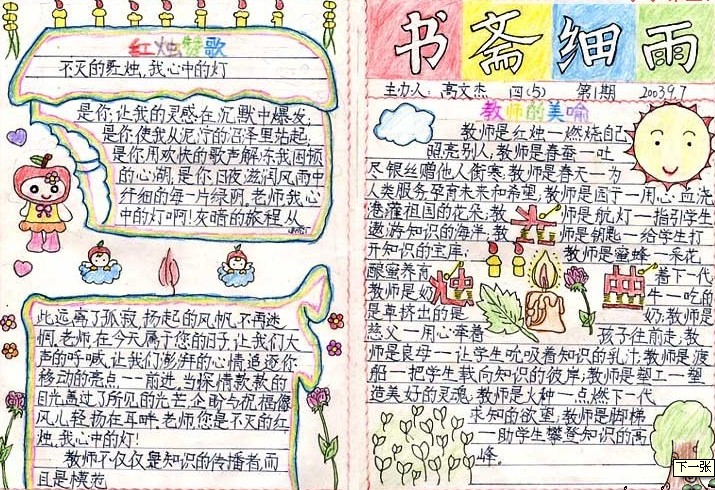 红烛颂歌
不灭的红烛,我心中的灯
是你,让我的灵感在沉默中爆发,
是你使我从泥泞的沼泽里站起,
是你用欢快的歌声解冻我困顿
的心湖,是你日夜滋润风雨中
纤细的每一片绿阴。老师,我心
中的灯啊!灰暗的旅程从
此远离了孤寂,扬起的风帆,不再迷
惘,老师,在今天属于您的日子,让我们大
声的呼喊,让我们澎湃的心情追逐你
移动的亮点,一前进。当深情款款的
目光,盖过了所见的光芒,企盼与祝福像
风儿轻扬在耳畔,老师您是不灭的红
烛,我心中的灯!
教师不仅仅是知识的传播者,而
且是模范
书斋细雨
主办人:高文杰 四(5) 第1期 2003.9.7
教师的美喻
教师是红烛—燃烧自己
照亮别人,教师是春蚕—吐
尽银丝赠他人御寒,教师是春天—为
人类服务孕育未来和希望;教师是园丁—用心血浇
灌祖国的花朵;教师是航灯—指引学生
遨游知识的海洋,教师是钥匙—给学生打
开知识的宝库;教师是蜜蜂—采花
酿蜜养育着下一代
教师是奶牛—吃的
是草挤出的是奶;教师是
慈父—用心牵着孩子往前走,教
师是良母—让学生吮吸着知识的乳汁;教师是渡
船—把学生载向知识的彼岸;教师是塑工—塑
造美好的灵魂,教师是火种—点燃下一代
求知的欲望;教师是脚梯
—助学生攀登知识的高
峰。
红烛
下一张